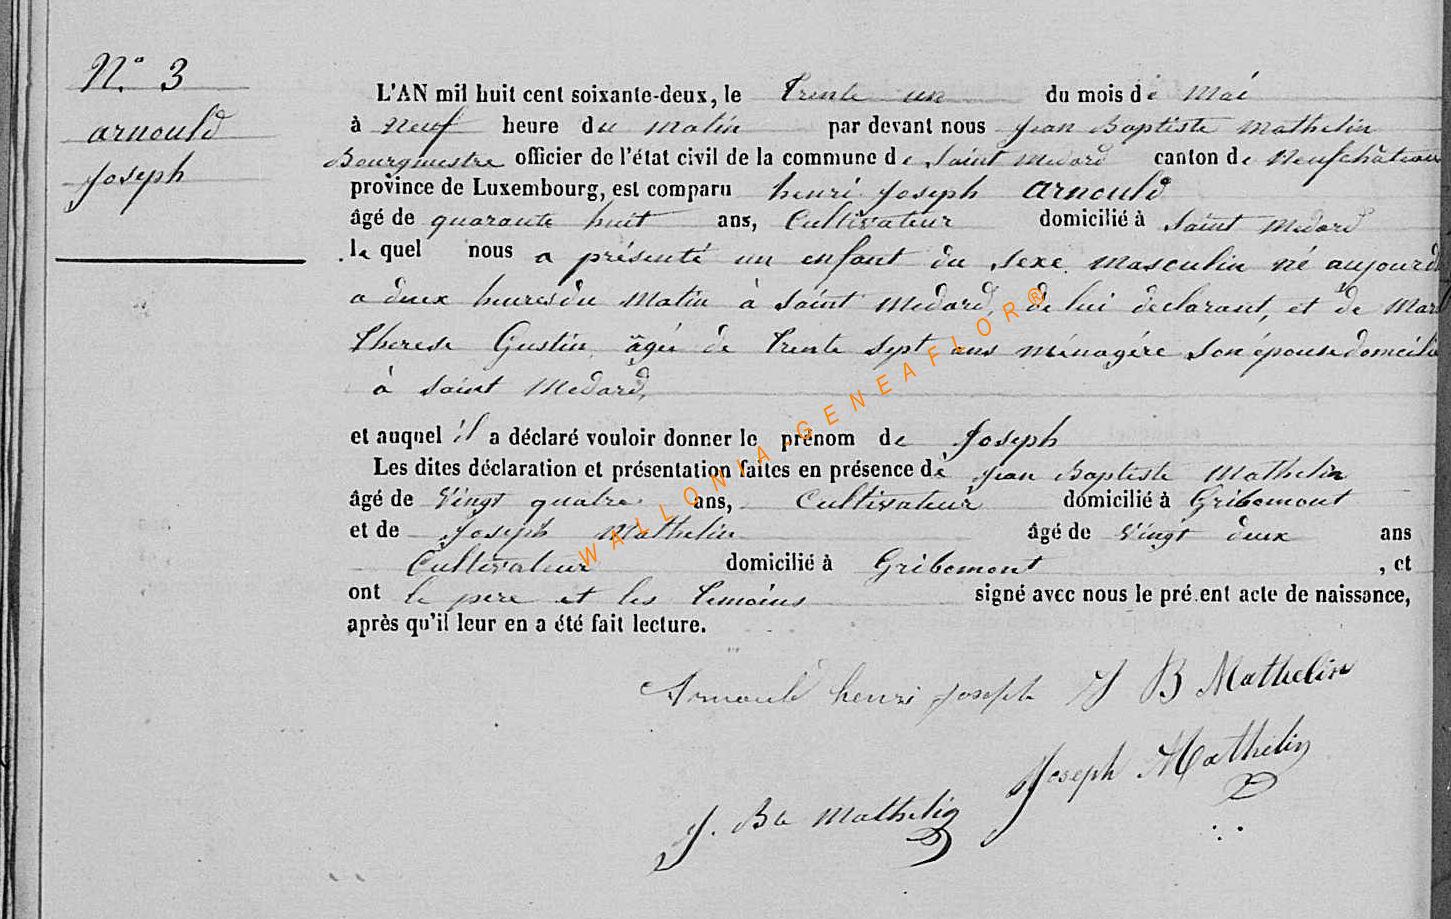 N.° 3
arnould
joseph
L'AN mil huit cent soixante-deux, le Trente un du mois de Mai
à Neuf heure du Matin par devant nous jean Baptiste Mathelin
Bourgmestre officier de l'état civil de la commune de Saint Medard canton de Neufchâteau
province de Luxembourg, est comparu henri joseph arnould
âgé de quarante huit ans, Cultivateur domicilié à Saint Medard
le quel nous a présenté un enfant du sexe masculin né aujourd
a deux heures du Matin à Saint Medard, de lui declarant, et de Mari
Therese Gustin, âgée de Trente sept ans ménagére son épouse domicili
à Saint Medard,
et auquel il a déclaré vouloir donner le prénom de Joseph
Les dites déclaration et présentation faites en présence de jean Baptiste Mathelin
âgé de Vingt quatre ans, Cultivateur domicilié à Gribomont
et de Joseph Mathelin âgé de Vingt deux ans
Cultivateur domicilié à Gribomont , et
ont le pere et les Temoins signé avec nous le pré.ent acte de naissance,
après qu'il leur en a été fait lecture.
Arnould henri joseph J B Mathelin
Joseph Mathelin
J. Bte Mathelin
WALLONIA-GENEAFLOR®